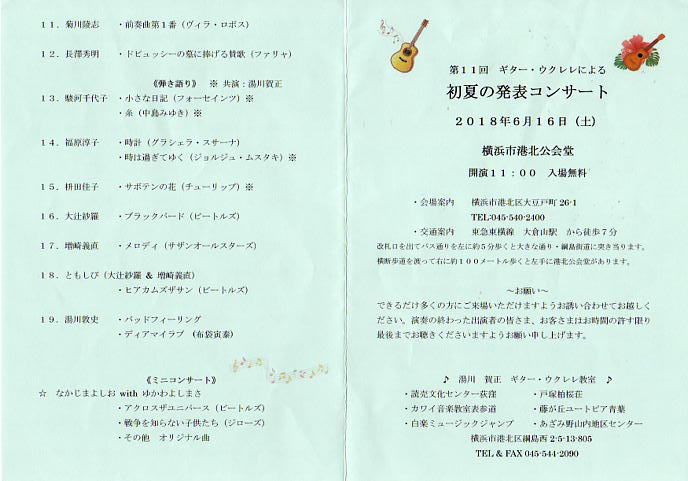 １１．菊川陵志　・前奏曲第１番（ヴィラ・ロボス）
１２．長澤秀明　・ドビュッシーの墓に捧げる賛歌（ファリャ）
《弾き語り》　※ 共演：湯川賀正
１３．駿河千代子　・小さな日記（フォーセインツ）※
・糸（中島みゆき）※
１４．福原淳子　・時計（グラシェラ・スサーナ）
・時は過ぎてゆく（ジョルジュ・ムスタキ）※
１５．枡田佳子　・サボテンの花（チューリップ）※
１６．大辻紗羅　・ブラックバード（ビートルズ）
１７．増崎義直　・メロディ（サザンオールスターズ）
１８．ともしび（大辻紗羅 & 増崎義直）
・ヒアカムズザサン（ビートルズ）
１９．湯川敦史　・バッドフィーリング
・ディアマイラブ （布袋寅泰）
《ミニコンサート》
☆　なかじまよしお with ゆかわよしまさ
・アクロスザユニバース（ビートルズ）
・戦争を知らない子供たち（ジローズ）
・その他　オリジナル曲
第１１回　ギター・ウクレレによる
初夏の発表コンサート
２０１８年６月１６日（土）
横浜市港北公会堂
開演１１：００　入場無料
・会場案内　横浜市港北区大豆戸町 26-1
TEL:045-540-2400
・交通案内　東急東横線　大倉山駅　から徒歩７分
改札口を出てバス通りを左に約５分歩くと大きな通り・綱島街道に突き当ります。
横断歩道を渡って右に約１００メートル歩くと左手に港北公会堂があります。
～お願い～
できるだけ多くの方にご来場いただけますようお誘い合わせてお越しく
ださい。演奏の終わった出演者の皆さま、お客さまはお時間の許す限り
最後までお聴きくださいますようお願い申し上げます。
♪　湯川　賀正　ギター・ウクレレ教室　♪
・読売文化センター荻窪　・戸塚柏桜荘
・カワイ音楽教室表参道　・藤が丘ユートピア青葉
・白楽ミュージックジャンプ　・あざみ野山内地区センター
横浜市港北区綱島西 2-5-13-805
TEL & FAX 045-544-2090